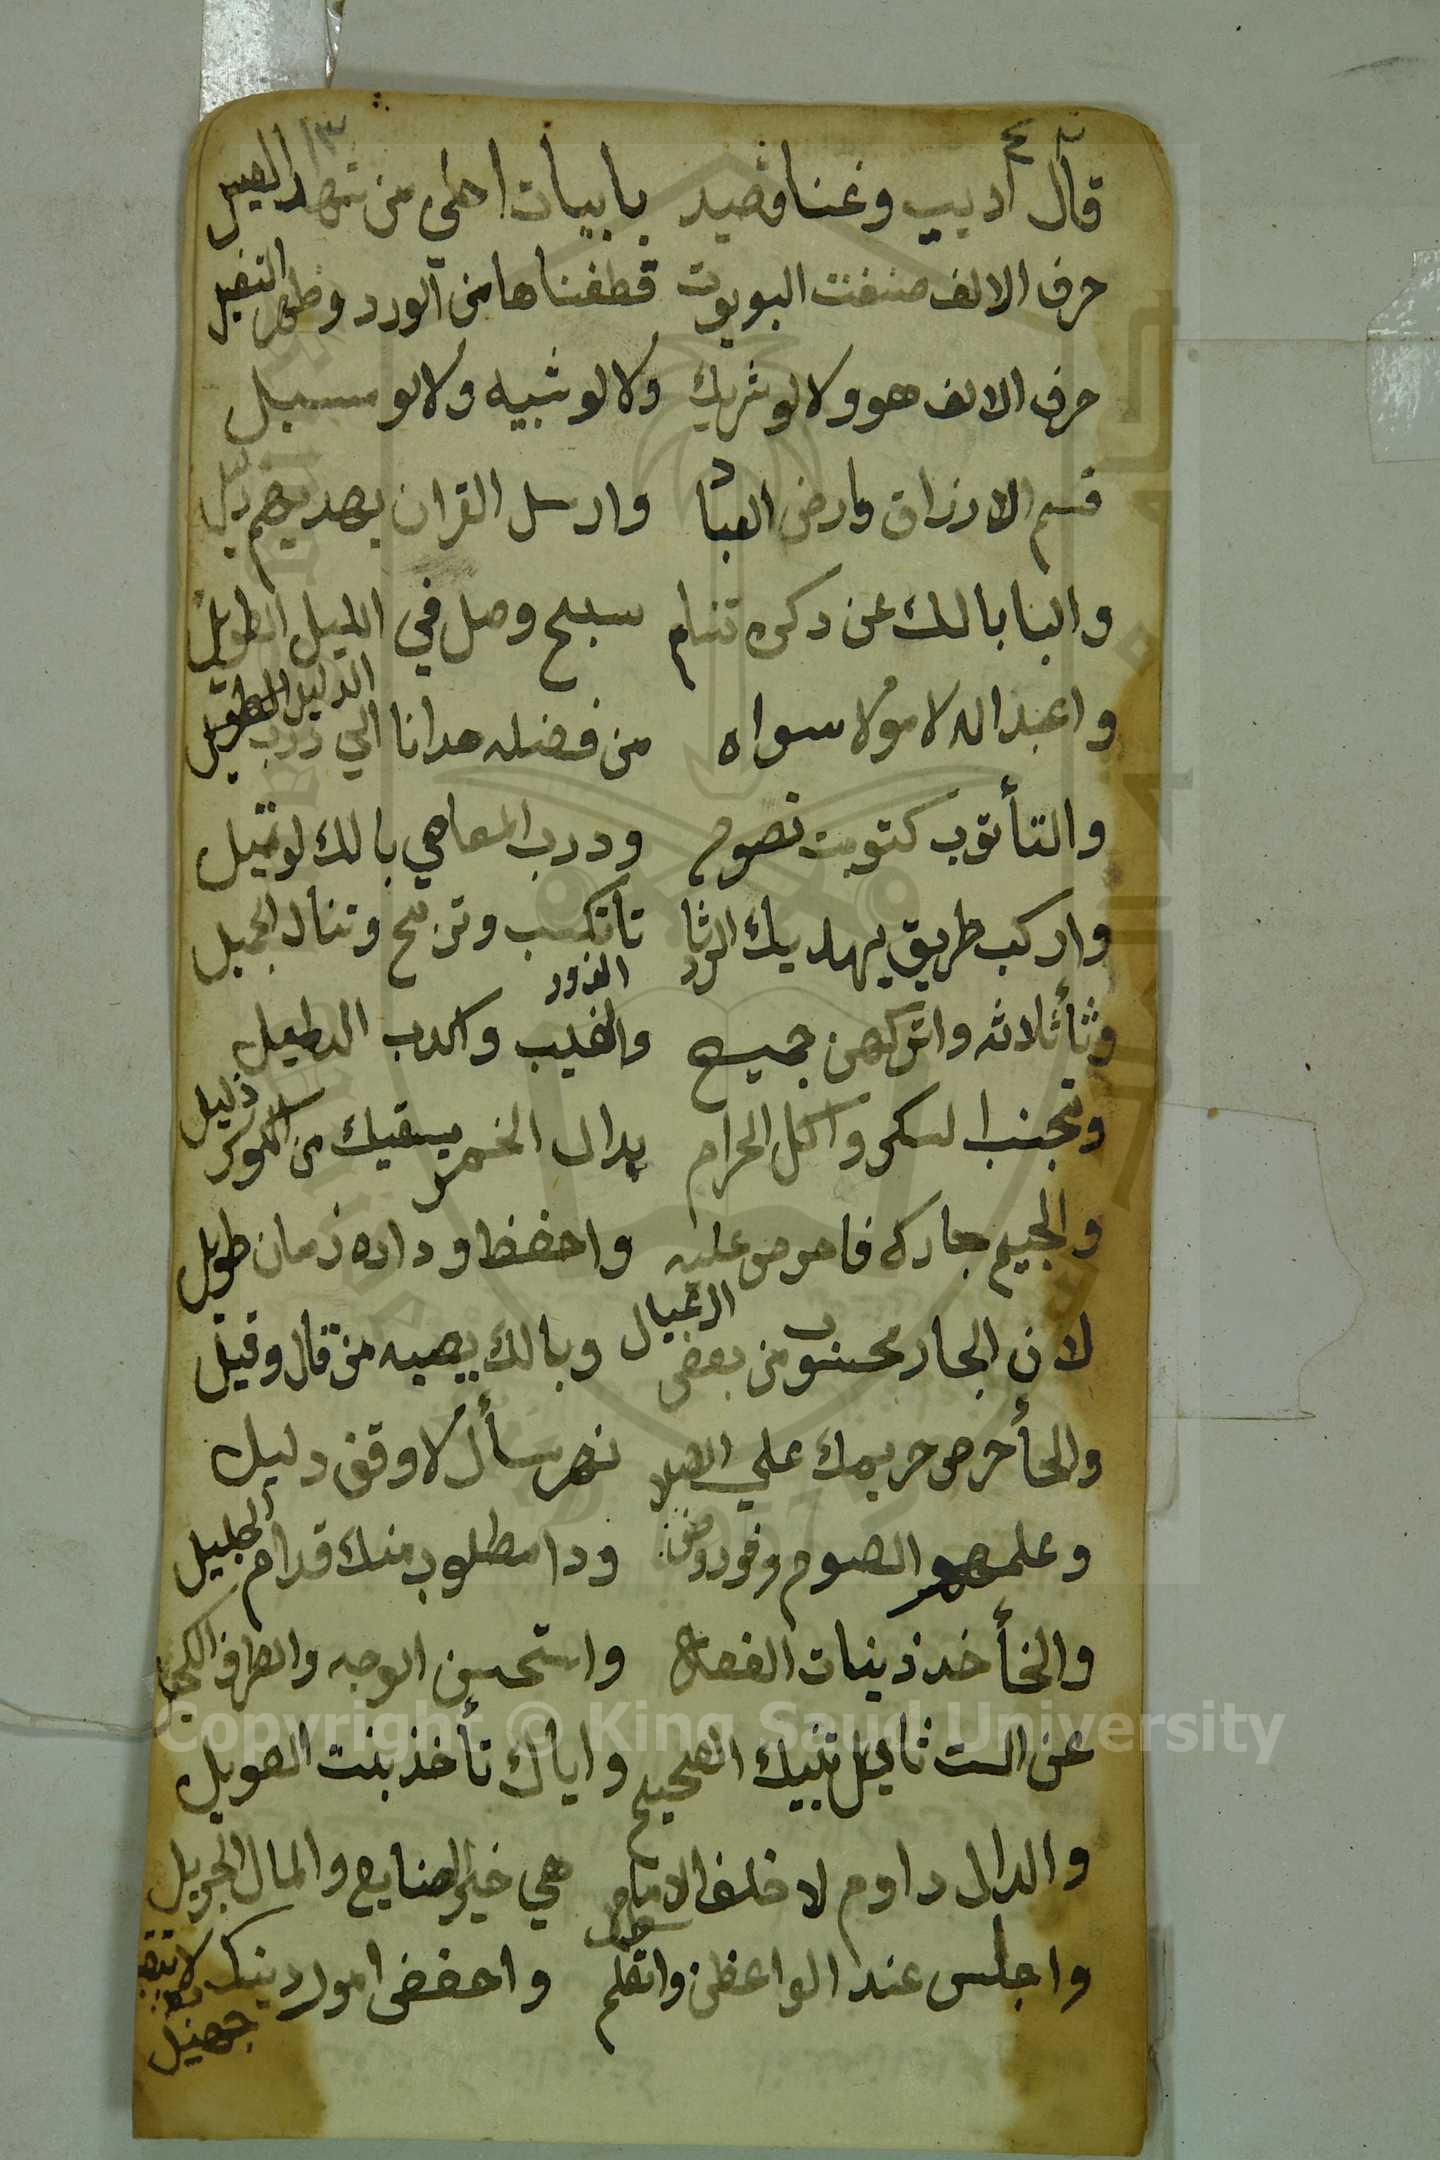 ١٣
قال أديب وغنا قصيد بابيات احلي من شهد العسيل
حرف الالف صنفت البويوت قطفناها من الورد وظهر النفيل
حرف الالف هوو لا لو شريك ولا لو شبيه ولا لو سبيل
قسم الارزاق وارض العباد وارسل القران يهديهم
والبا بالك عن دكره تنام سبح وصل في الليل الطويل
واعبد اله لا مولا سواه من فضله هدانا الي درب الدليل
والتأ توب كتوبت نصوح ودرب المعاصي بالك لو تميل
واركب طريق يهديك الرشاد تا تكسب وتربح وتنال الجميل
وثأ ثلاثه واتركهن جميع والغيب الزور وكدب
وتجنب السكر واكل الحرام بدال الخمر يسقيك من الكوثر
والجيم جارك فاحرص عليه واحفظ وداده زمان طويل
لان الجار محسوب من بعض العيال وبالك يصيبه من قال وقيل
والحأ حرص حريمك علي الصلا نهر سأل لا وقف دليل
وعلمهم الصوم وفرد ودا مطلوب منك قدام الجليل
والخأ خد زينات الفعال واستحسن الوجه والطرف الكحيل
عن الست ثايل تنبيك الصحيح واياك تأخذ بنت العويل
والدال داوم لا خلف الامام هي خير الصنايع والمال الجزيل
واجلس عند الواعظ واتعلم واحفض امور دينك لا تبقى جهيل
Copyright © King Saud University